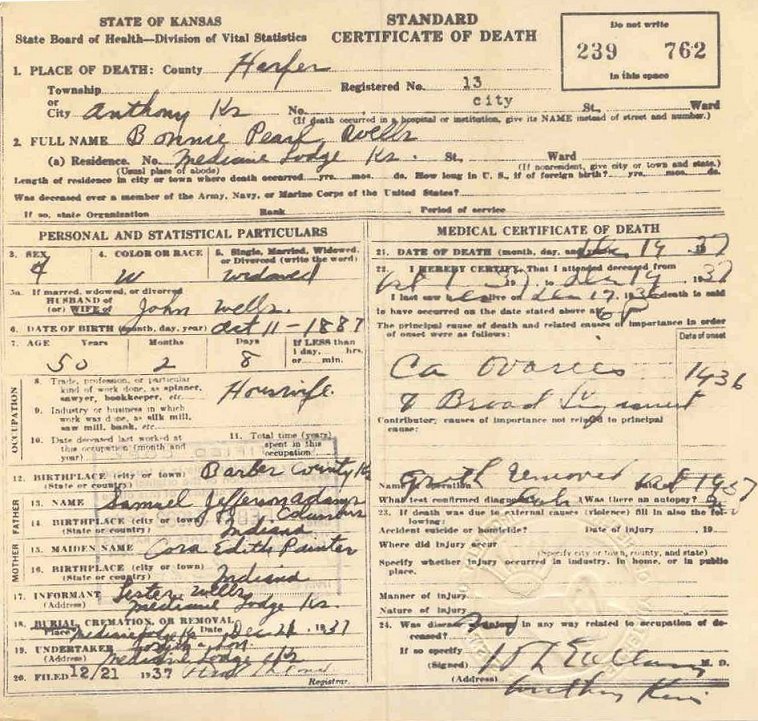 STATE OF KANSAS
State Board of Health—Division of Vital Statistics
STANDARD
CERTIFICATE OF DEATH
Do not write
239 762
in this space
1. PLACE OF DEATH: County Harper
Township Registered No. 13
or
City Anthony Ks No. city St. Ward
(If death occurred in a hospital or institution, give its NAME instead of street and number.)
2. FULL NAME Bonnie Pearl Wells
(a) Residence. No. Medicine Lodge Ks. St., Ward
(Usual place of abode) (If nonresident, give city or town and state.)
Length of residence in city or town where death occurred yrs. mos. ds. How long in U. S., if of foreign birth? yrs. mos. ds.
Was deceased ever a member of the Army, Navy, or Marine Corps of the United States?
If so, state Organization Rank Period of service
PERSONAL AND STATISTICAL PARTICULARS
3. SEX 4. COLOR OR RACE 5. Single, Married, Widowed, or Divorced (write the word)
F W widowed
5a. If married, widowed, or divorced
HUSBAND of
(or) WIFE of John Wells
6. DATE OF BIRTH (month, day, year) Oct 11-1887
7. AGE Years Months Days If LESS than 1 day, hrs. or min.
50 2 8
OCCUPATION
8. Trade, profession, or particular kind of work done, as spinner, sawyer, bookkeeper, etc. Housewife
9. Industry or business in which work was done, as silk mill, saw mill, bank, etc.
10. Date deceased last worked at this occupation (month and year)
11. Total time (years) spent in this occupation
12. BIRTHPLACE (city or town) Barber County Ks
(State or country)
FATHER
13. NAME Samuel Jefferson Adams
14. BIRTHPLACE (city or town) Columbus
(State or country) Indiana
MOTHER
15. MAIDEN NAME Cora Edith Painter
16. BIRTHPLACE (city or town)
(State or country) Indiana
17. INFORMANT Lester Wells
(Address) Medicine Lodge Ks.
18. BURIAL, CREMATION, OR REMOVAL
Place Date Dec 21 1937
19. UNDERTAKER
(Address) Medicine Lodge Ks
20. FILED 12/21 1937
Registrar.
MEDICAL CERTIFICATE OF DEATH
21. DATE OF DEATH (month, day, and year) Dec 19 1937
22. I HEREBY CERTIFY, That I attended deceased from
1937 to Dec 19 1937
I last saw her alive on Dec 17 1937 death is said
to have occurred on the date stated above at
The principal cause of death and related causes of importance in order
of onset were as follows: Date of onset
Ca Ovaries 1936
& Broad Ligament
Contributory causes of importance not related to principal
cause:
Name of operation removed Date of 1937
What test confirmed diagnosis? Was there an autopsy?
23. If death was due to external causes (violence) fill in also the following:
Accident suicide or homicide? Date of injury 19
Where did injury occur
(Specify city or town, county, and state)
Specify whether injury occurred in industry, in home, or in public
place.
Manner of injury
Nature of injury
24. Was disease or injury in any way related to occupation of deceased?
If so specify
(Signed) M. D.
(Address) Anthony